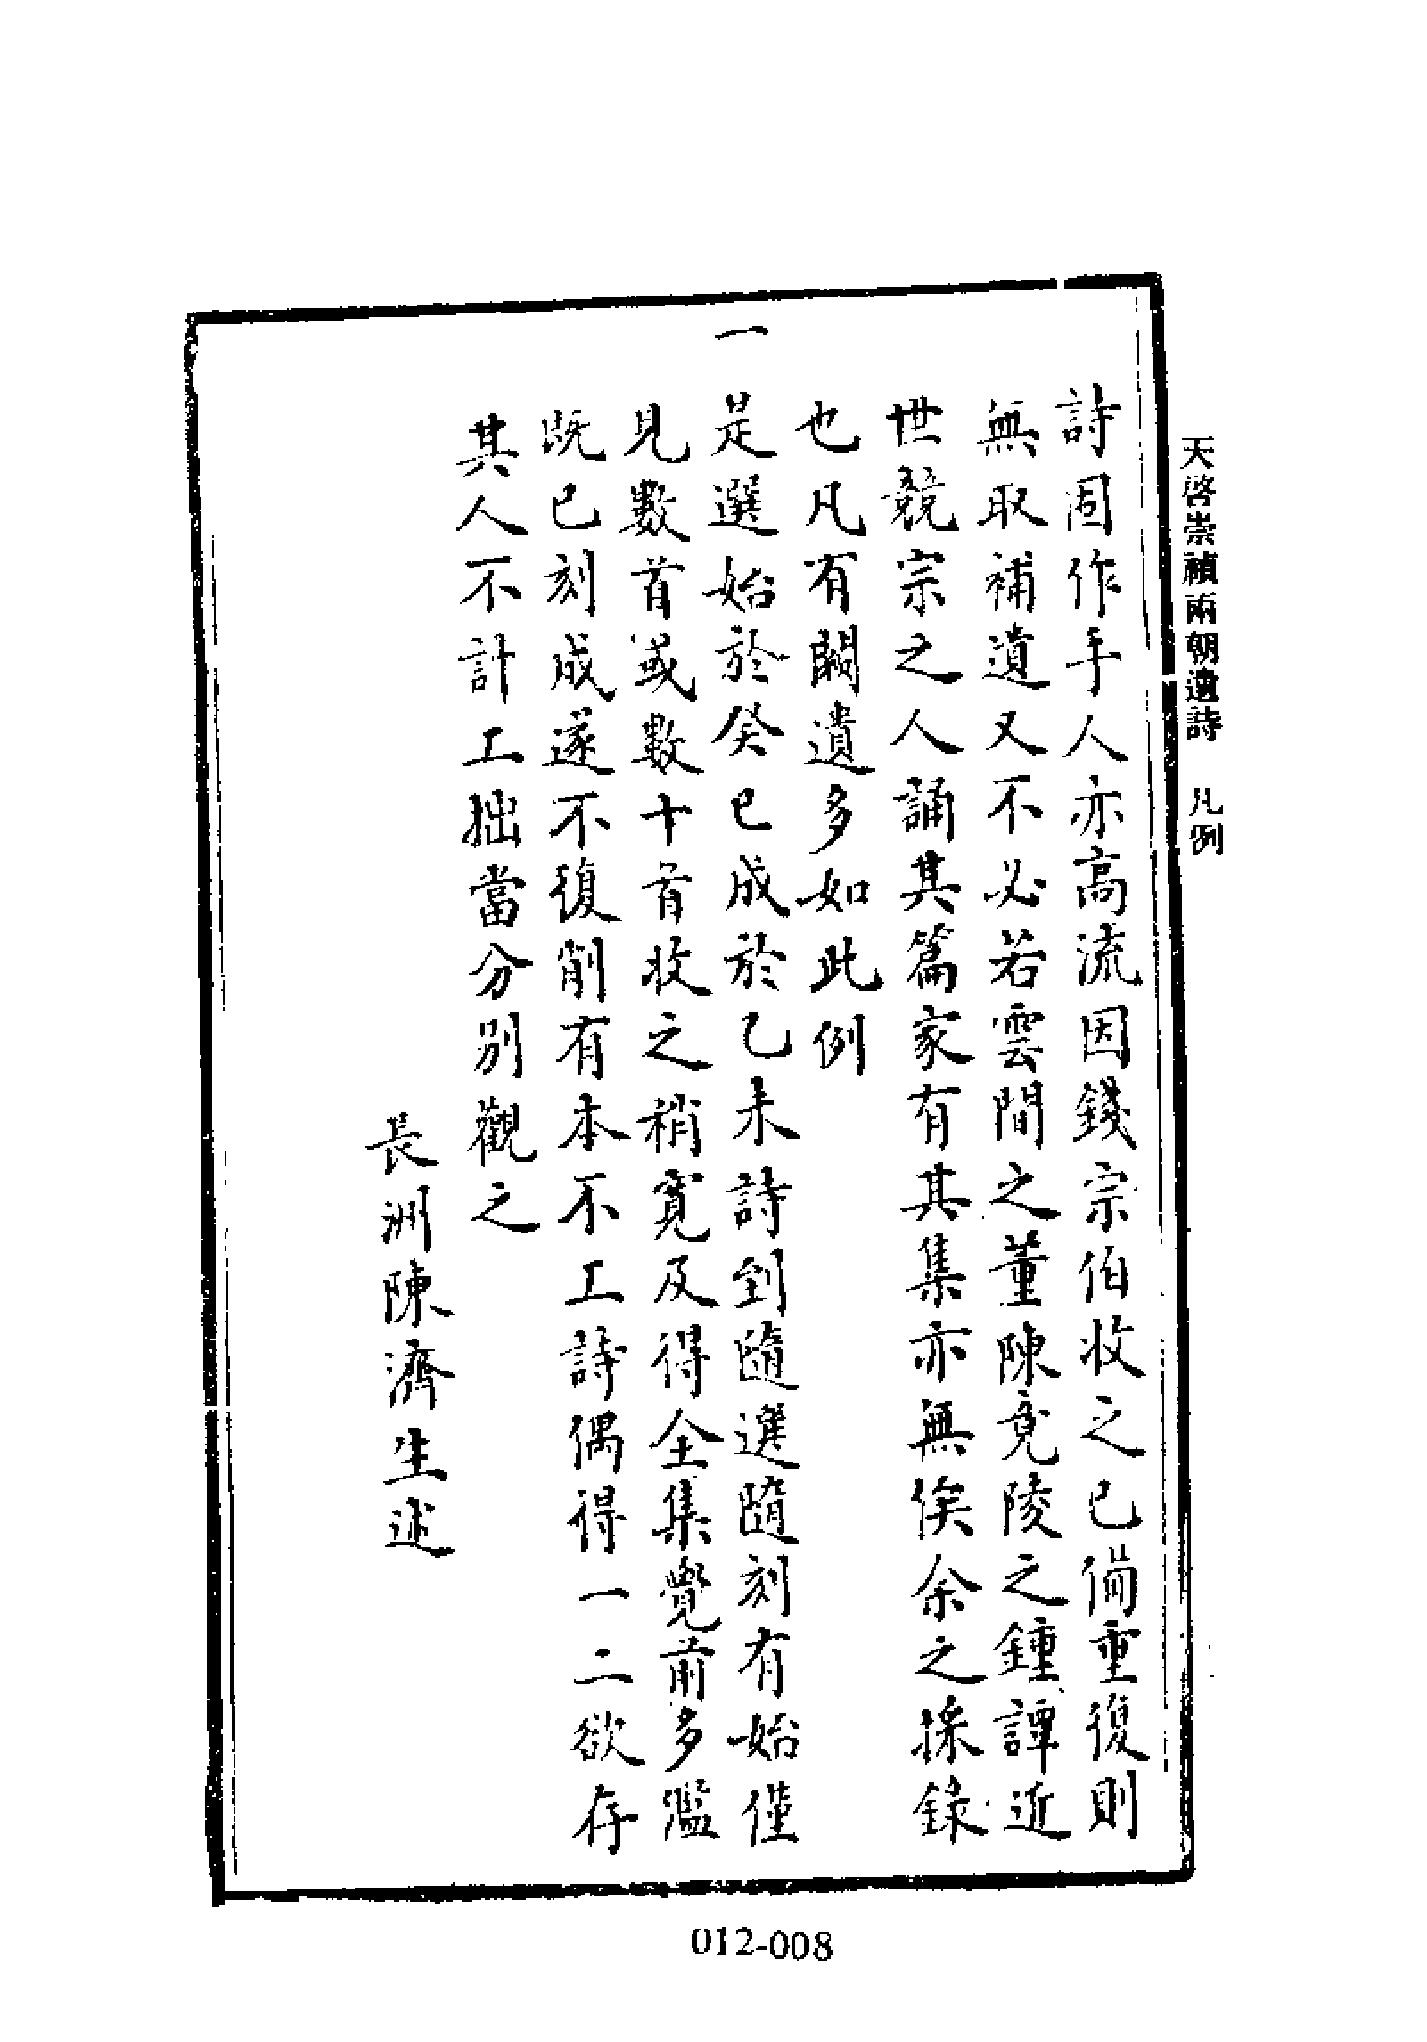 天啓崇禎兩朝遺詩 凡例
詩固作手人亦高流因錢宗伯收之已備重復則
無取補遺又不必若雲間之董陳竟陵之鍾譚近
世競宗之人誦其篇家有其集亦無俟余之採錄
也凡有闕遺多如此例
一是選始於癸巳成於乙未詩到隨選隨刻有始僅
見數首或數十首收之稍寬及得全集覺前多濫
既已刻成遂不復削有本不工詩偶得一二欲存
其人不計工拙當分別觀之
長洲陳濟生述
012-008